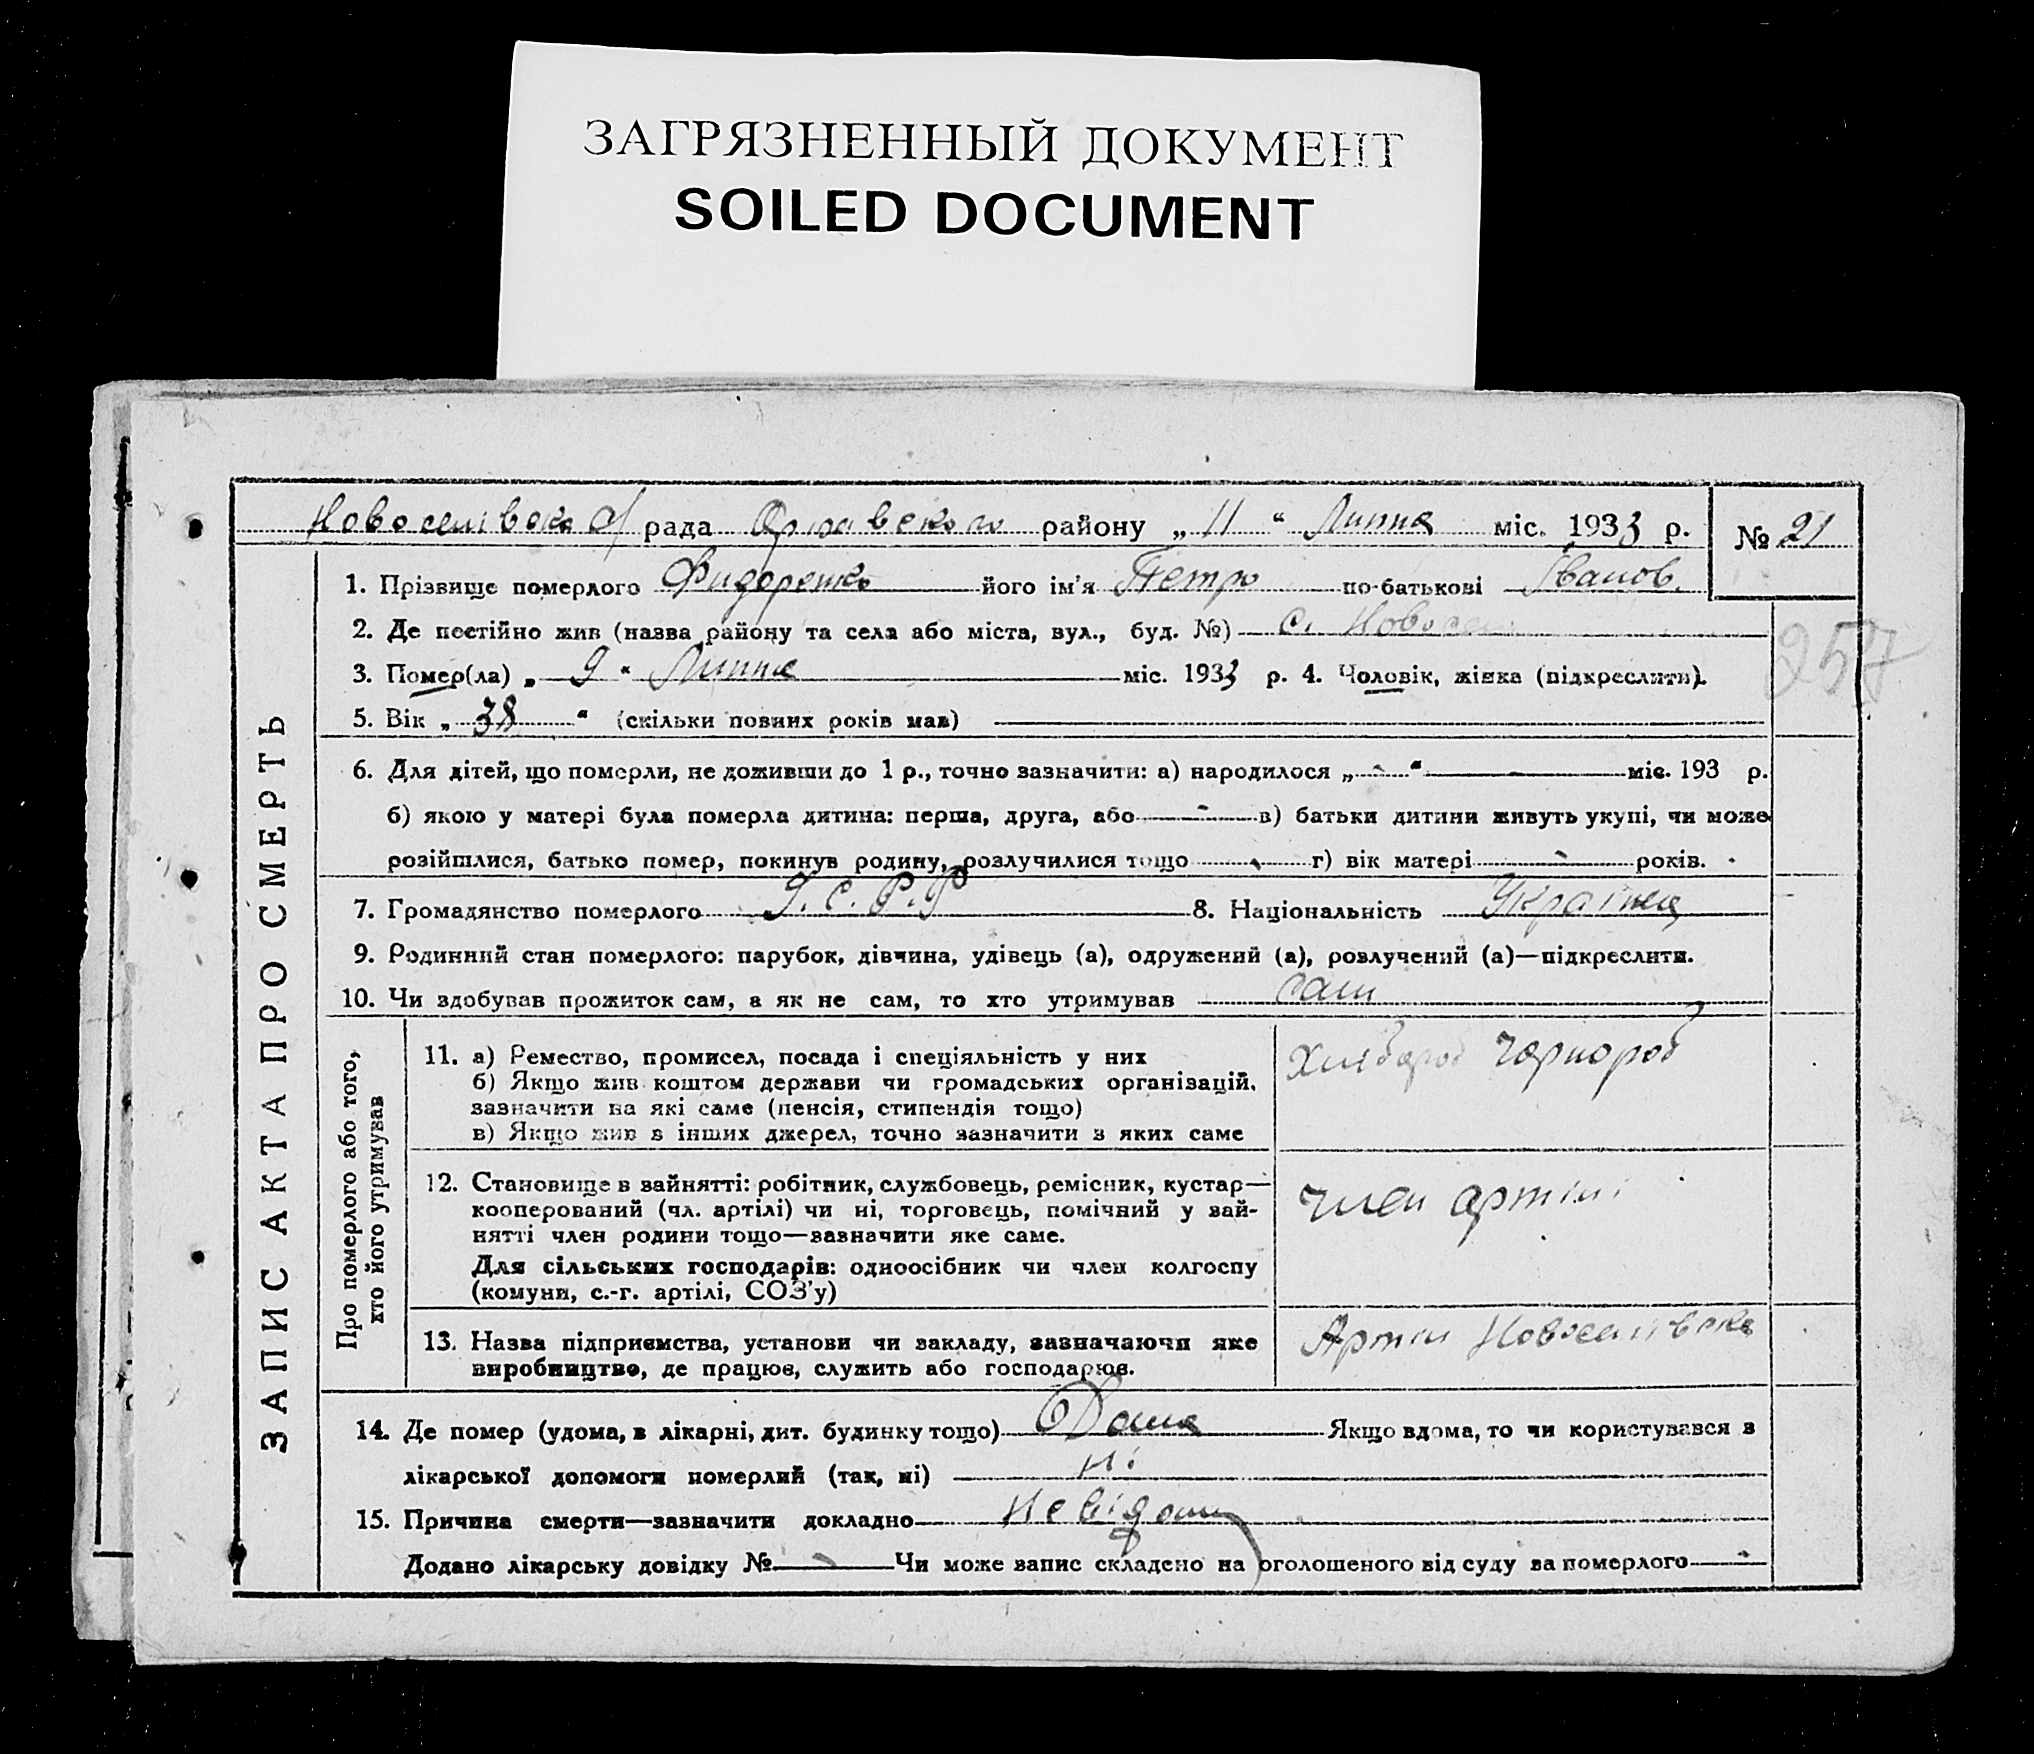 ЗАГРЯЗНЕННЫЙ ДОКУМЕНТ
SOILED DOCUMENT
Новоселівська рада районy „ 11 “ Липня міс. 1933 р. № 21
ЗАПИС АКТА ПРО СМЕРТЬ
1. Прізвище померлого Фидоренко його ім'я Петро по-батькові Іванов.
2. Де постійно жив (назва району та села або міста, вул., буд. №) с. Новосел
257
3. Помер(ла) „ 9 “ Липня міс. 1933 р. 4. Чоловік, жінка (підкреслити).
5. Вік „ 38 “ (скільки повних років мав)
6. Для дітей, що померли, не доживши до 1 р., точно зазначити: а) народилося „ - “ - міс. 193 р.
б) якою у матері була померла дитина: перша, друга, або - в) батьки дитини живуть укупі, чи може
розійшлися, батько помер, покинув родину, розлучилися тощо - г) вік матері - років.
7. Громадянство померлого У.С.Р.Р 8. Національність Українец
9. Родинний стан померлого: парубок, дівчина, удівець (а), одружений (а), розлучений (а)—підкреслити.
10. Чи здобував прожиток сам, а як не сам, то хто утримував сам
Про померлого або того,
хто його утримував
11. а) Ремество, промисел, посада і спеціяльність у них
б) Якщо жив коштом держави чи громадських організацій,
зазначити на які саме (пенсія, стипендія тощо)
в) Якщо жив з інших джерел, точно зазначити з яких саме
Хлібороб чорнороб
12. Становище в зайнятті: робітник, службовець, ремісник, кустар—
кооперований (чл. артілі) чи ні, торговець, помічний у зай-
нятті член родини тощо—зазначити яке саме.
Для сільських господарів: одноосібник чи член колгоспу
(комуни, с.-г. артілі, СОЗ'у)
член артілі
13. Назва підприємства, установи чи закладу, зазначаючи яке
виробництво, де працює, служить або господарює.
Артіл Новоселівска
14. Де помер (удома, в лікарні, дит. будинку тощо) Дома Якщо вдома, то чи користувався з
лікарської допомоги померлий (так, ні) ні
15. Причина смерти—зазначити докладно Невідому
Додано лікарську довідку № - Чи може запис складено на оголошеного від суду за померлого -